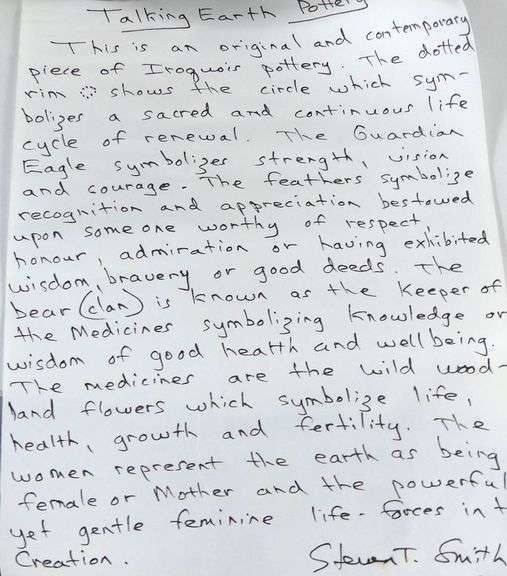 Talking Earth Pottery
This is an original and contemporary
piece of Iroquois pottery. The dotted
rim shows the circle which sym-
bolizes a sacred and continuous life
cycle of renewal. The Guardian
Eagle symbolizes strength, vision
and courage. The feathers symbolize
recognition and appreciation bestowed
upon someone worthy of respect,
honour, admiration or having exhibited
wisdom, bravery or good deeds. The
bear (clan) is known as the Keeper of
the Medicines symbolizing knowledge or
wisdom of good health and well being.
The medicines are the wild wood-
land flowers which symbolize life,
health, growth and fertility. The
women represent the earth as being
female or Mother and the powerful
yet gentle feminine life-forces in t
Creation.
Steven T. Smith